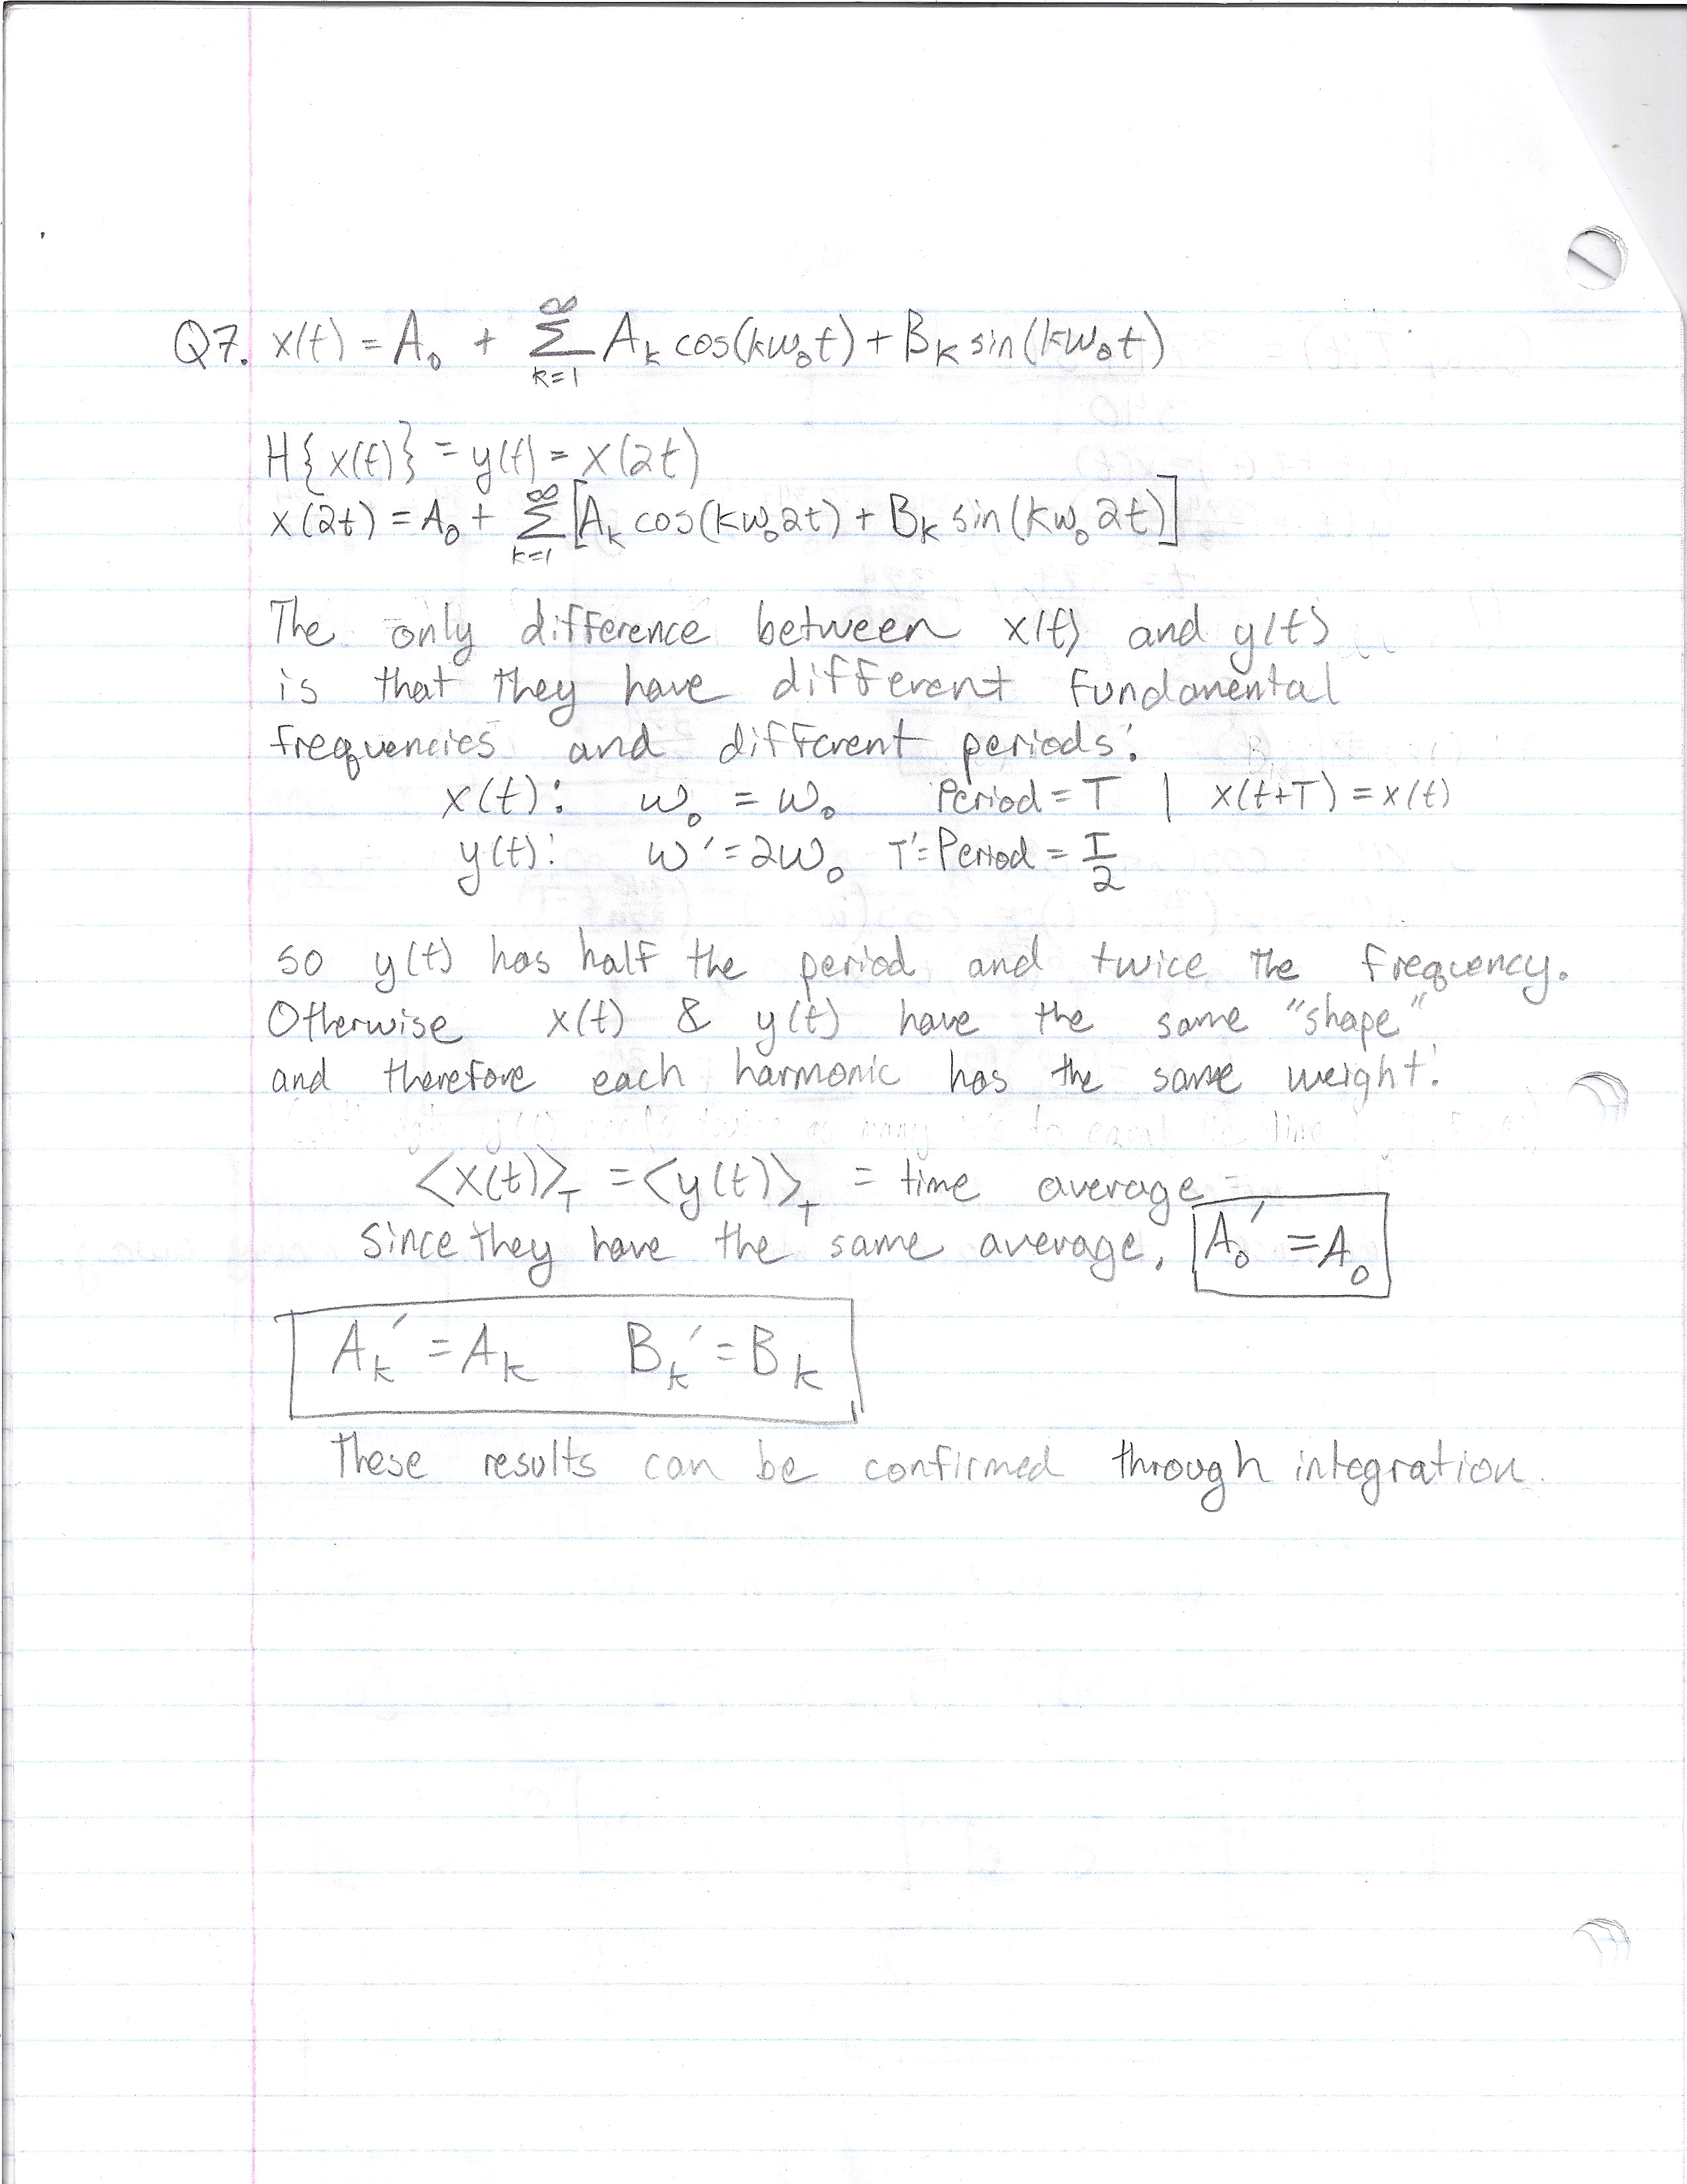 Q7. x(t) = A₀ + ∑_{k=1}^{∞} A_k cos(kω₀t) + B_k sin(kω₀t)
H{x(t)} = y(t) = x(2t)
x(2t) = A₀ + ∑_{k=1}^{∞} [A_k cos(kω₀2t) + B_k sin(kω₀2t)]
The only difference between x(t) and y(t)
is that they have different fundamental
frequencies and different periods:
x(t): ω₀ = ω₀ Period = T | x(t+T) = x(t)
y(t): ω' = 2ω₀ T' = Period = T/2
so y(t) has half the period and twice the frequency.
Otherwise x(t) & y(t) have the same "shape"
and therefore each harmonic has the same weight.
<x(t)>_T = <y(t)>_T = time average =
Since they have the same average, A₀' = A₀
A_k' = A_k B_k' = B_k
These results can be confirmed through integration.